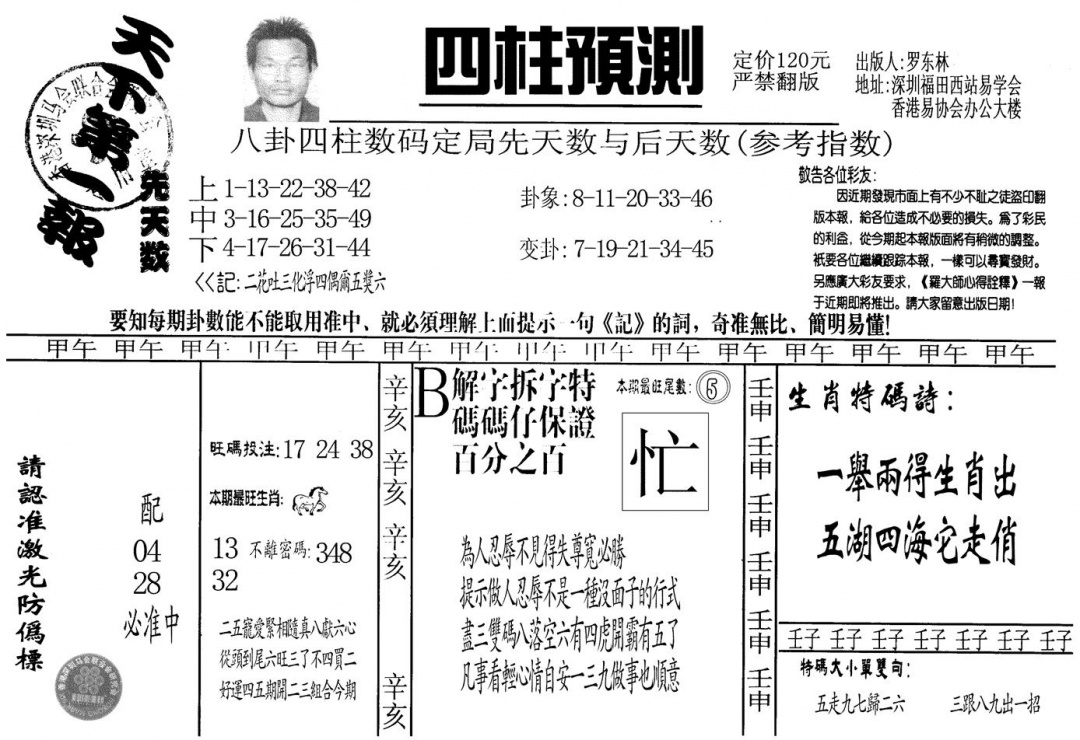 天下第一報
四柱預測
定价120元
严禁翻版
出版人:罗东林
地址:深圳福田西站易学会
香港易协会办公大楼
八卦四柱数码定局先天数与后天数(参考指数)
先天数
上1-13-22-38-42
中3-16-25-35-49
下4-17-26-31-44
<<記:二花吐三化浮四偶爾五獎六
卦象:8-11-20-33-46
变卦:7-19-21-34-45
敬告各位彩友:
因近期發現市面上有不少不耻之徒盜印翻
版本報,給各位造成不必要的損失。爲了彩民
的利益,從今期起本報版面將有稍微的調整。
衹要各位繼續跟踪本報,一樣可以尋寶發財。
另應廣大彩友要求,《羅大師心得詮釋》一報
于近期即將推出。請大家留意出版日期!
要知每期卦數能不能取用准中、就必須理解上面提示一句《記》的詞,奇准無比、簡明易懂!
甲午 甲午 甲午 甲午 甲午 甲午 甲午 甲午 甲午 甲午 甲午 甲午 甲午 甲午 甲午
請認准激光防僞標
配
04
28
必准中
旺碼投注:17 24 38
本期最旺生肖:
13 不離密碼:348
32
二五寵愛緊相隨真八獻六心
從頭到尾六旺三了不四買二
好運四五期開二三組合今期
辛亥
辛亥
辛亥
辛亥
B解字拆字特
碼碼仔保證
百分之百
本期最旺尾數:5
忙
為人忍辱不見得失尊寬必勝
提示做人忍辱不是一種沒面子的行式
盡三雙碼八落空六有四虎開霸有五了
凡事看輕心情自安一三九做事也順意
壬申
壬申
壬申
壬申
壬申
壬申
生肖特碼詩:
一舉兩得生肖出
五湖四海它走俏
壬子 壬子 壬子 壬子 壬子 壬子 壬子
特碼大小單雙句:
五走九七歸二六 三跟八九出一招